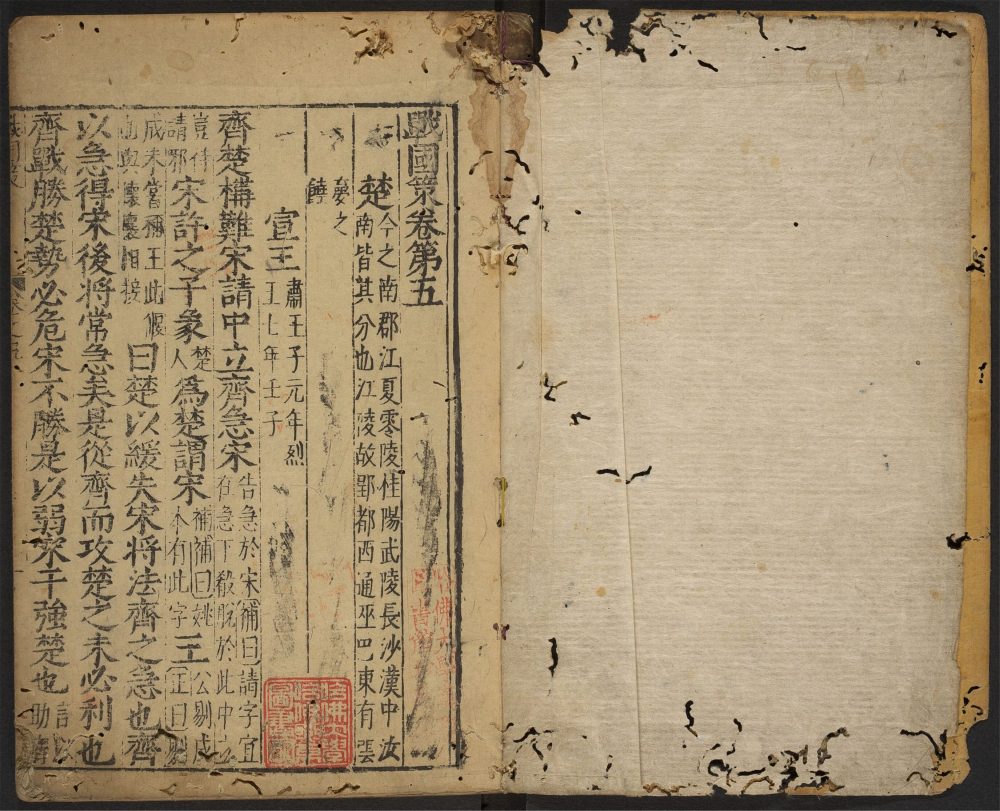 戰國策卷第五
楚今之南郡江夏零陵桂陽武陵長沙漢中汝
南皆其分也江陵故郢都西通巫巴東有雲
夢之
饒
宣王肅王子元年烈
王七年壬子
齊楚構難宋請中立齊急宋告急於宋補曰請字宜
在急下殺脫於此中立
豈待
請邪宋許之子象楚
人爲楚謂宋補補曰姚
本有此字王公剔成
正曰剔
成未嘗稱王此偃
與懷襄相接曰楚以緩失宋將法齊之急也齊
以急得宋後將常急矣是從齊而攻楚之未必利也
齊戰勝楚勢必危宋不勝是以弱宋干強楚也
助